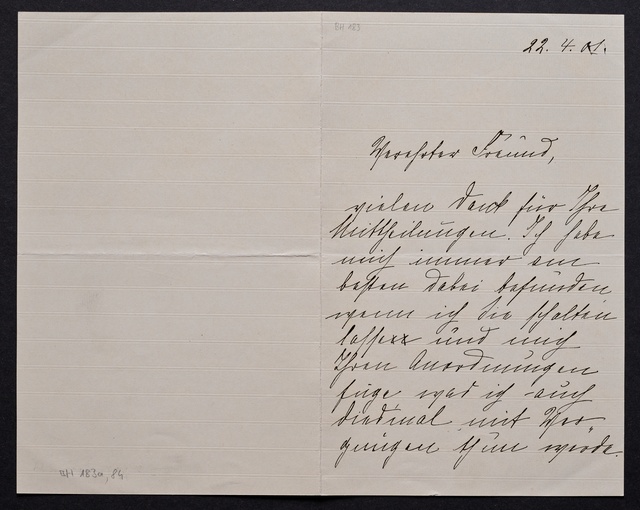 BH 183
22. 4. 01.
Verehrter Freund,
vielen Dank für Ihre
Mittheilungen. Ich habe
mich immer am
besten dabei befunden
wenn ich Sie schalten
lasse und mich
Ihren Anordnungen
füge, was ich auch
diesmal mit Ver-
gnügen thun werde.
1830, 84